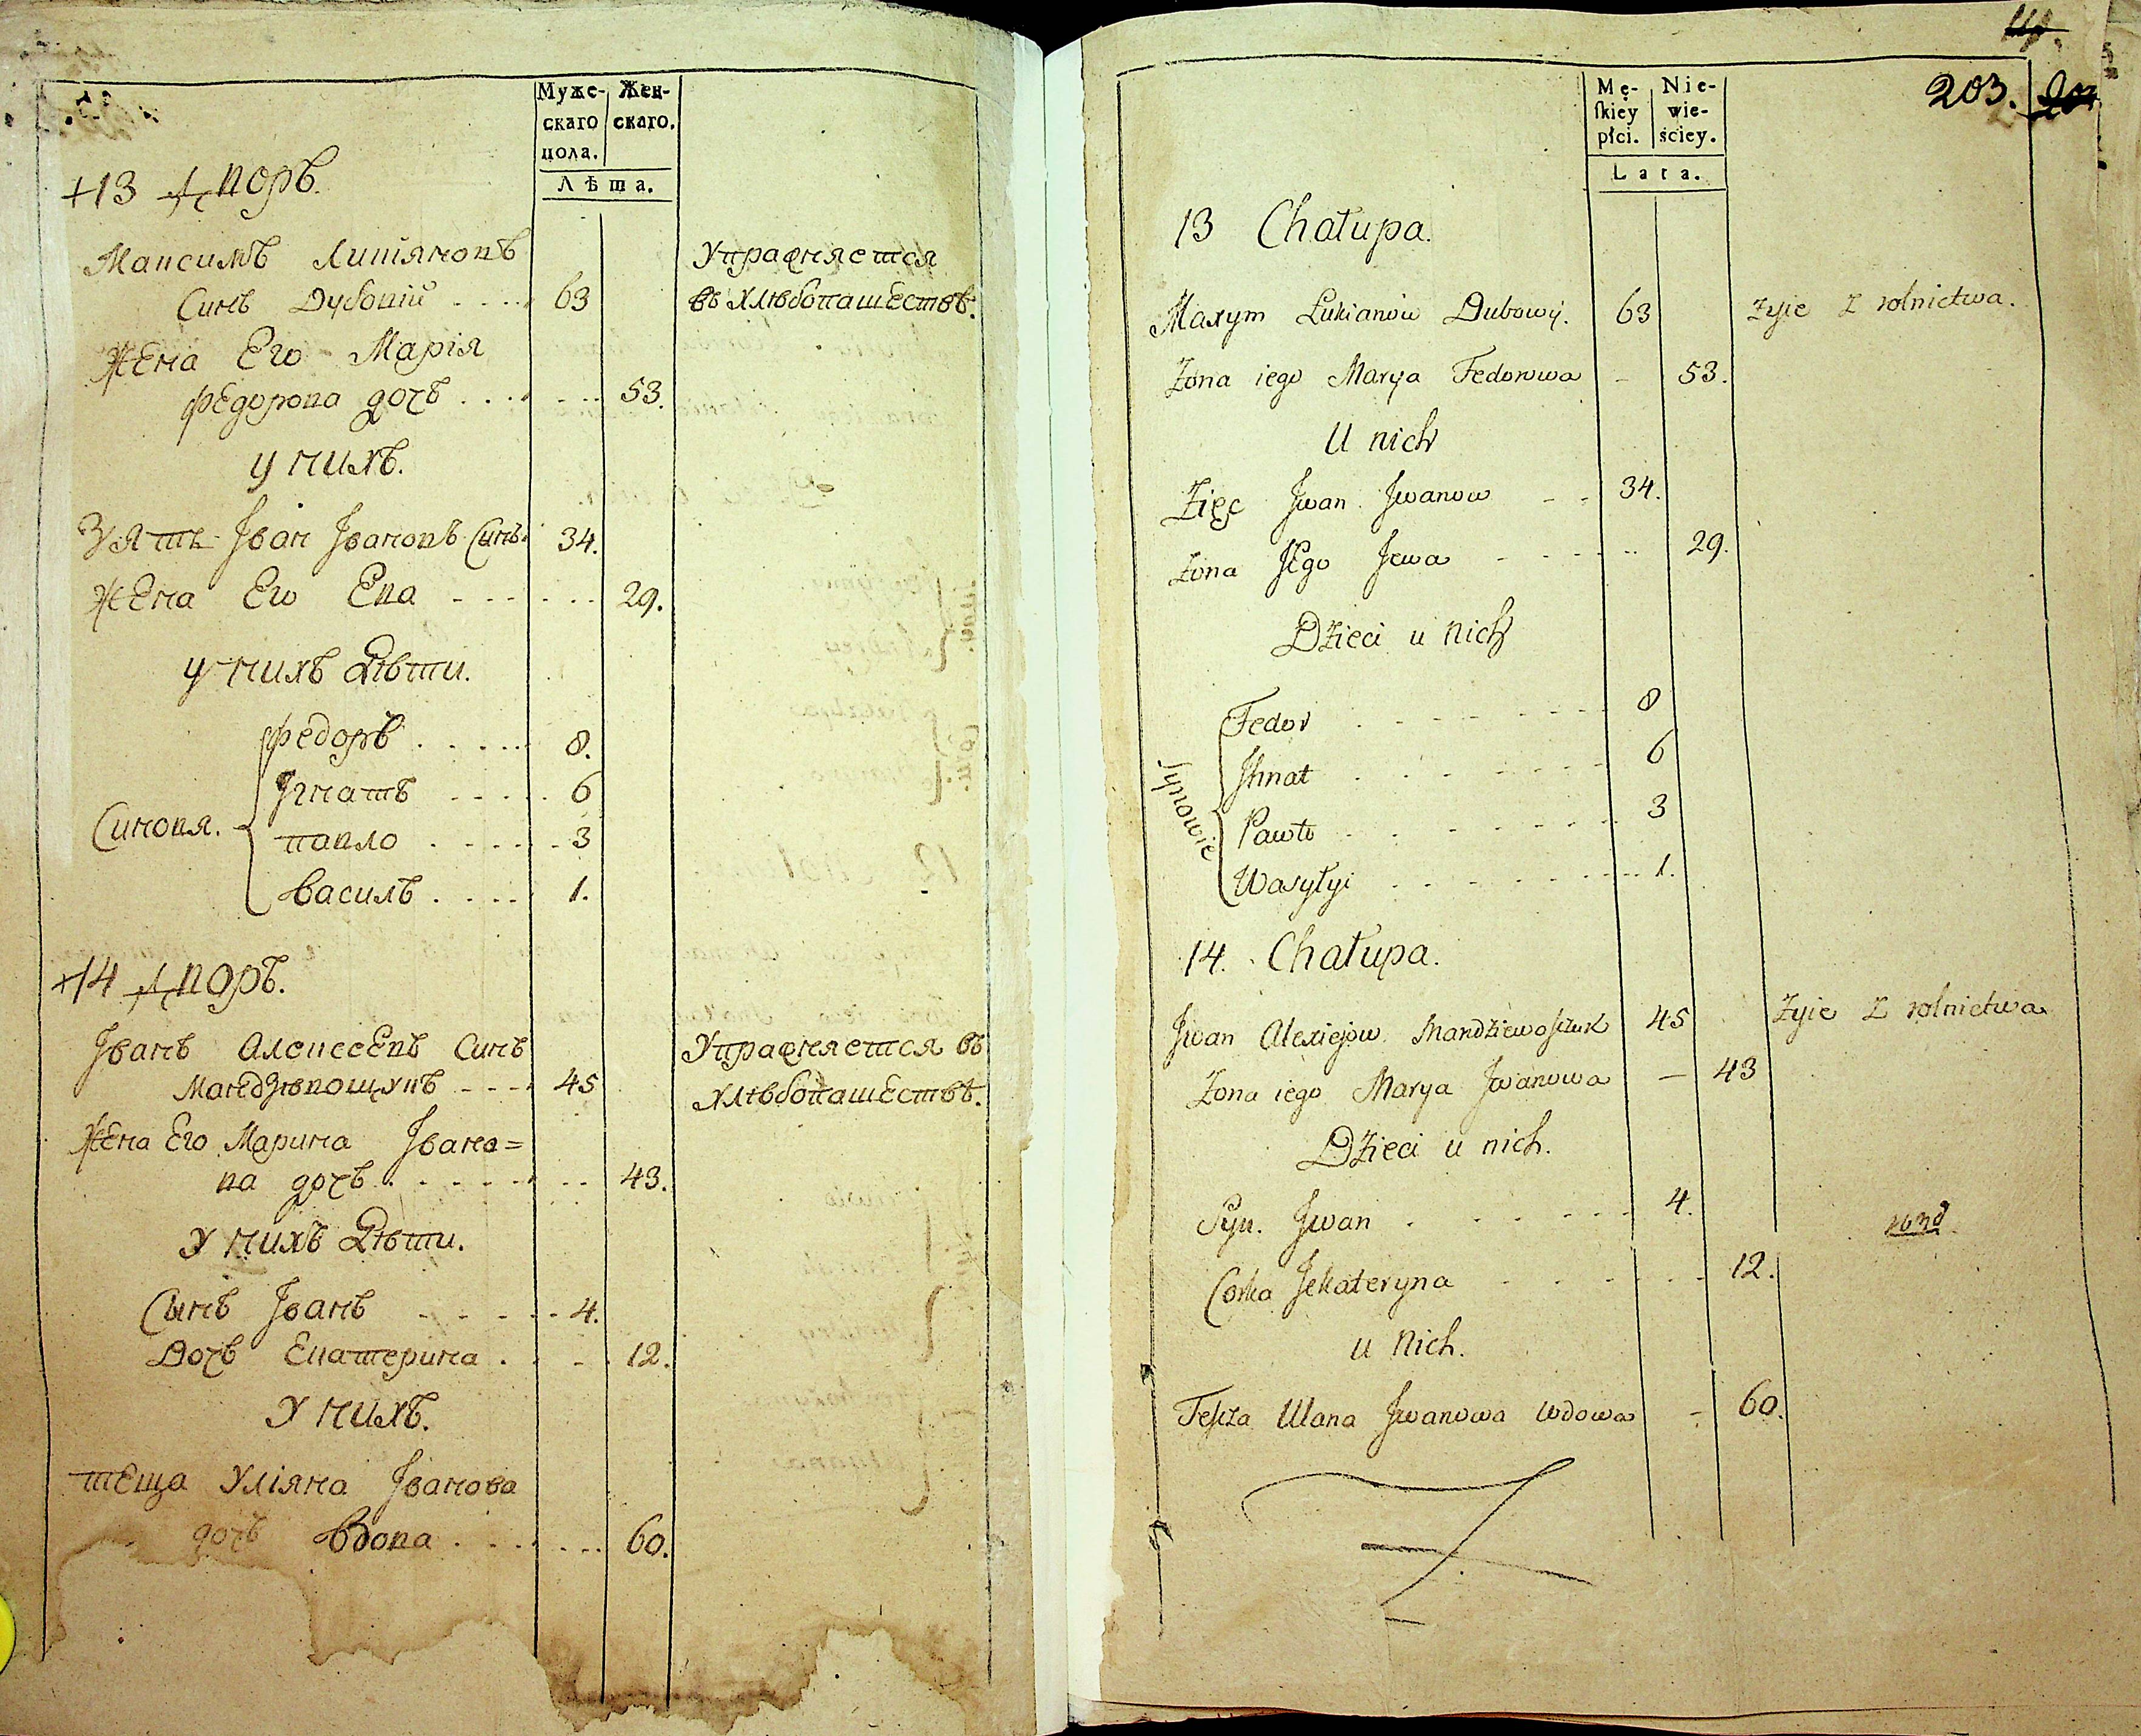 Муже-
скаго
пола.
Жен-
скаго.
Лѣта.
+13 Дворъ.
Максимъ Лукіяновъ
Синъ Дубовій 63
Упражняется
въ хлѣбопашествѣ.
Жена Его Марія
Федорова дочъ 53.
у нихъ.
Зять Іван Івановъ Синъ 34.
Жена Его Ева 29.
у нихъ Дѣти.
Синовя.
Федоръ 8.
Ігнатъ 6
павло 3
василъ 1.
+14 Дворъ.
Іванъ Алексеевъ Синъ
Манедзѣвощукъ 45
Упражняется въ
хлѣбопашествѣ.
Жена Его Марина Івано=
ва дочъ 43.
У нихъ Дѣти.
Сынъ Іванъ 4.
Дочъ Екатерина 12.
У нихъ.
тЕща Уліяна Іванова
дочъ вдова 60.
203.
Mę-
skiey
płci.
Nie-
wie-
ściey.
Lata.
13 Chałupa.
Maxym Lukianów Dubowy. 63 żyie z rolnictwa.
Żona iego Marya Fedorowa 53.
U nich
Zięc Jwan Jwanow 34.
żona Jego Jewa 29.
Dzieci u nich
Synowie
Fedor 8
Jhnat 6
Pawło 3
Wasyłyi 1.
14. Chałupa.
Jwan Alexiejow Mandziewoszczuk 45 żyie z rolnictwa
Żona iego Marya Jwanowa 43
Dzieci u nich.
Syn. Jwan 4.
Corka Jekateryna 12.
u Nich.
Teszcza Ulana Jwanowa wdowa 60.